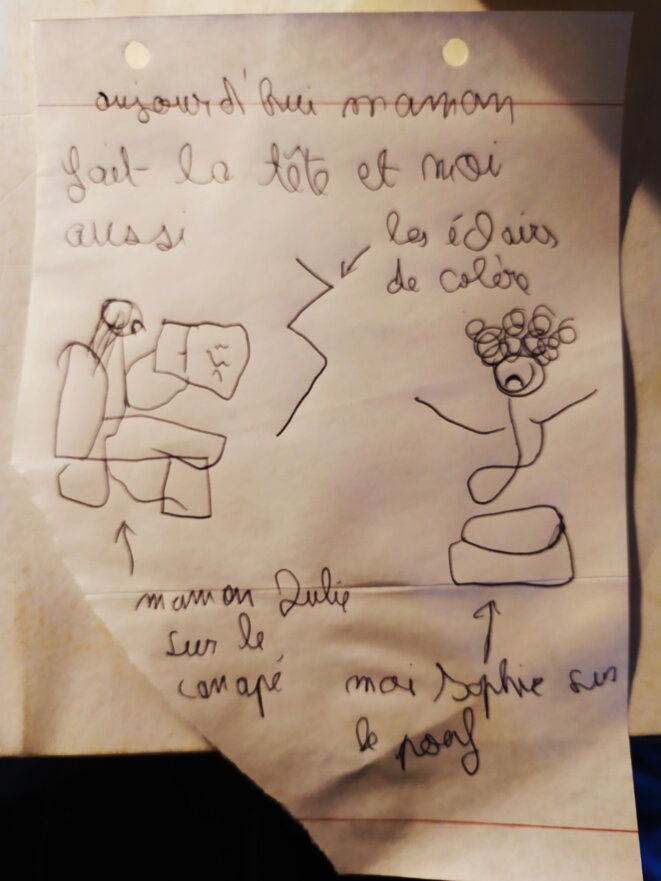 aujourd'hui maman
fait la tête et moi
aussi
les éclairs
de colère
maman Julie
sur le
canapé
moi Sophie sur
le pouf